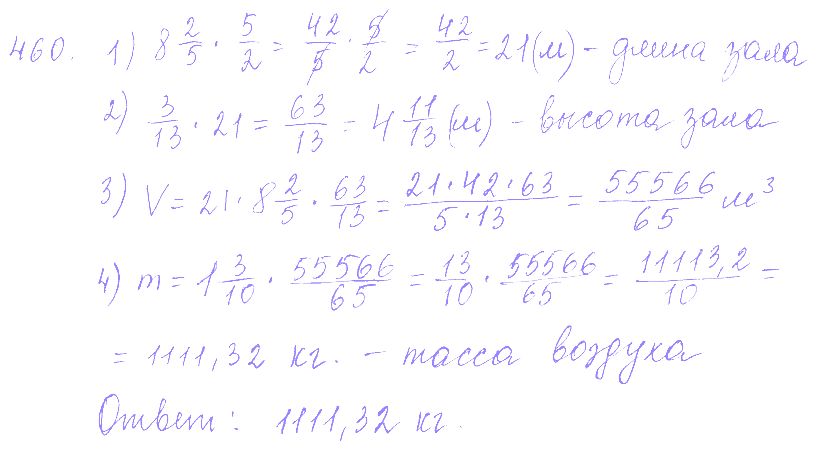 460. 1) 8 2/5 · 5/2 = 42/5 · 5/2 = 42/2 = 21 (м) - длина зала
2) 3/13 · 21 = 63/13 = 4 11/13 (м) - высота зала
3) V = 21 · 8 2/5 · 63/13 = 21·42·63/5·13 = 55566/65 м³
4) m = 1 3/10 · 55566/65 = 13/10 · 55566/65 = 11113,2/10 =
= 1111,32 кг. - масса воздуха
Ответ: 1111,32 кг.